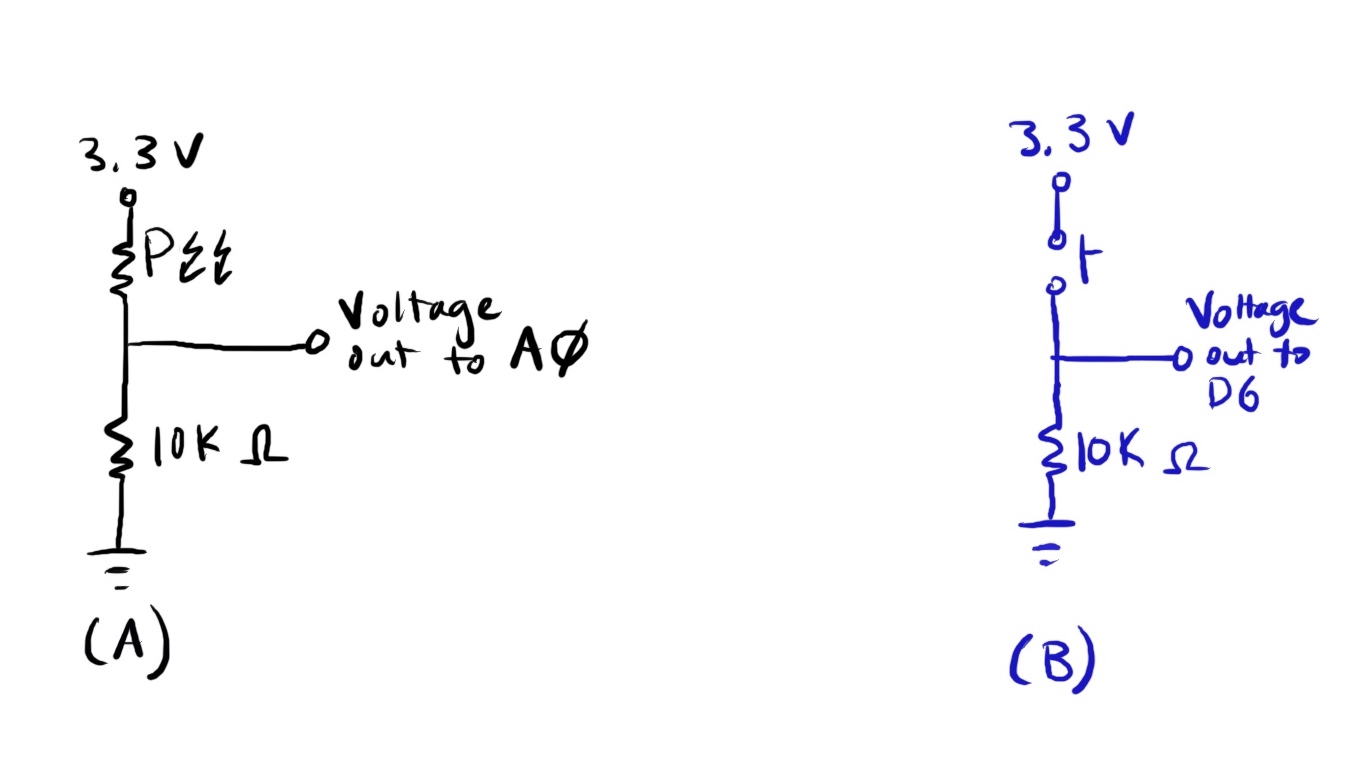 3.3 V
Voltage
out to AØ
10K Ω
(A)
3.3 V
Voltage
out to
D6
10K Ω
(B)